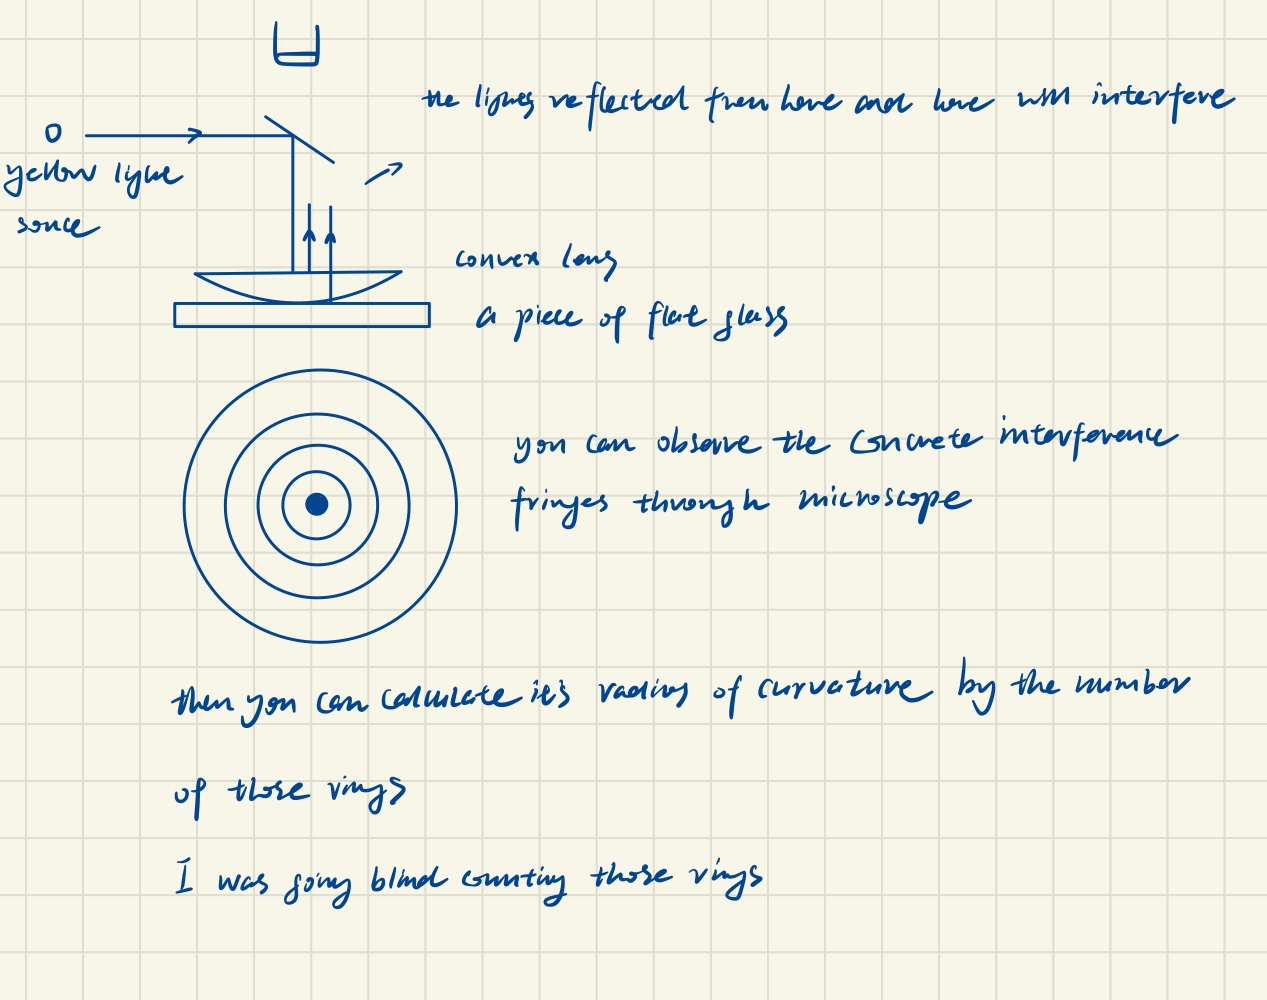 the lights reflected from here and here will interfere
yellow light
source
convex lens
a piece of flat glass
you can observe the concrete interference
fringes through microscope
then you can calculate it's radius of curvature by the number
of those rings
I was going blind counting those rings